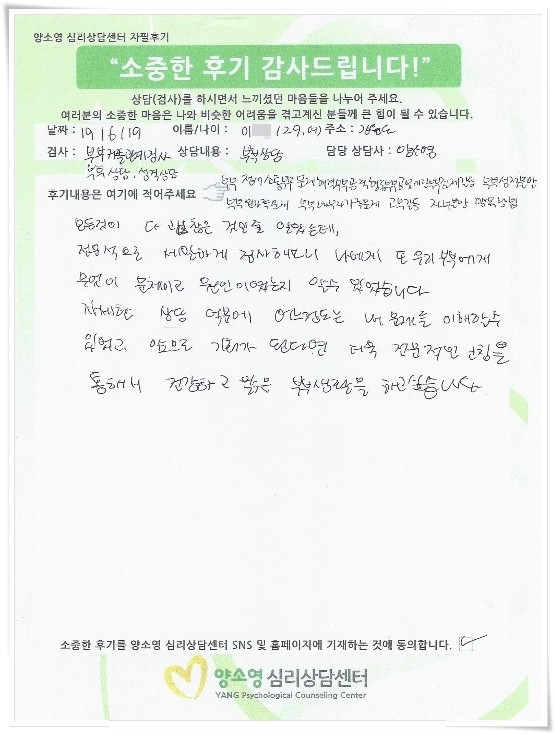 양소영 심리상담센터 자필후기
“소중한 후기 감사드립니다!”
상담(검사)를 하시면서 느끼셨던 마음들을 나누어 주세요.
여러분의 소중한 마음은 나와 비슷한 어려움을 겪고계신 분들께 큰 힘이 될 수 있습니다.
날짜 : 19 6/19 이름/나이 : 이 (29, 여) 주소 :
검사 : 부부커플관계검사 상담내용 : 부부상담 담당 상담사 : 양소영
부부상담, 성격상담
후기내용은 여기에 적어주세요
모든것이 다 괜찮은 것인줄 알았는데,
전문적으로 세밀하게 검사해보니 나에게 또 우리 부부에게
무엇이 문제이고 원인이었는지 알수 있었습니다
자세한 상담 덕분에 어느정도는 내 문제를 이해할수
있었고, 앞으로 기회가 된다면 더욱 전문적인 코칭을
통해서 건강하고 밝은 부부생활을 하고싶습니다.
소중한 후기를 양소영 심리상담센터 SNS 및 홈페이지에 기재하는 것에 동의합니다.
양소영 심리상담센터
YANG Psychological Counseling Center